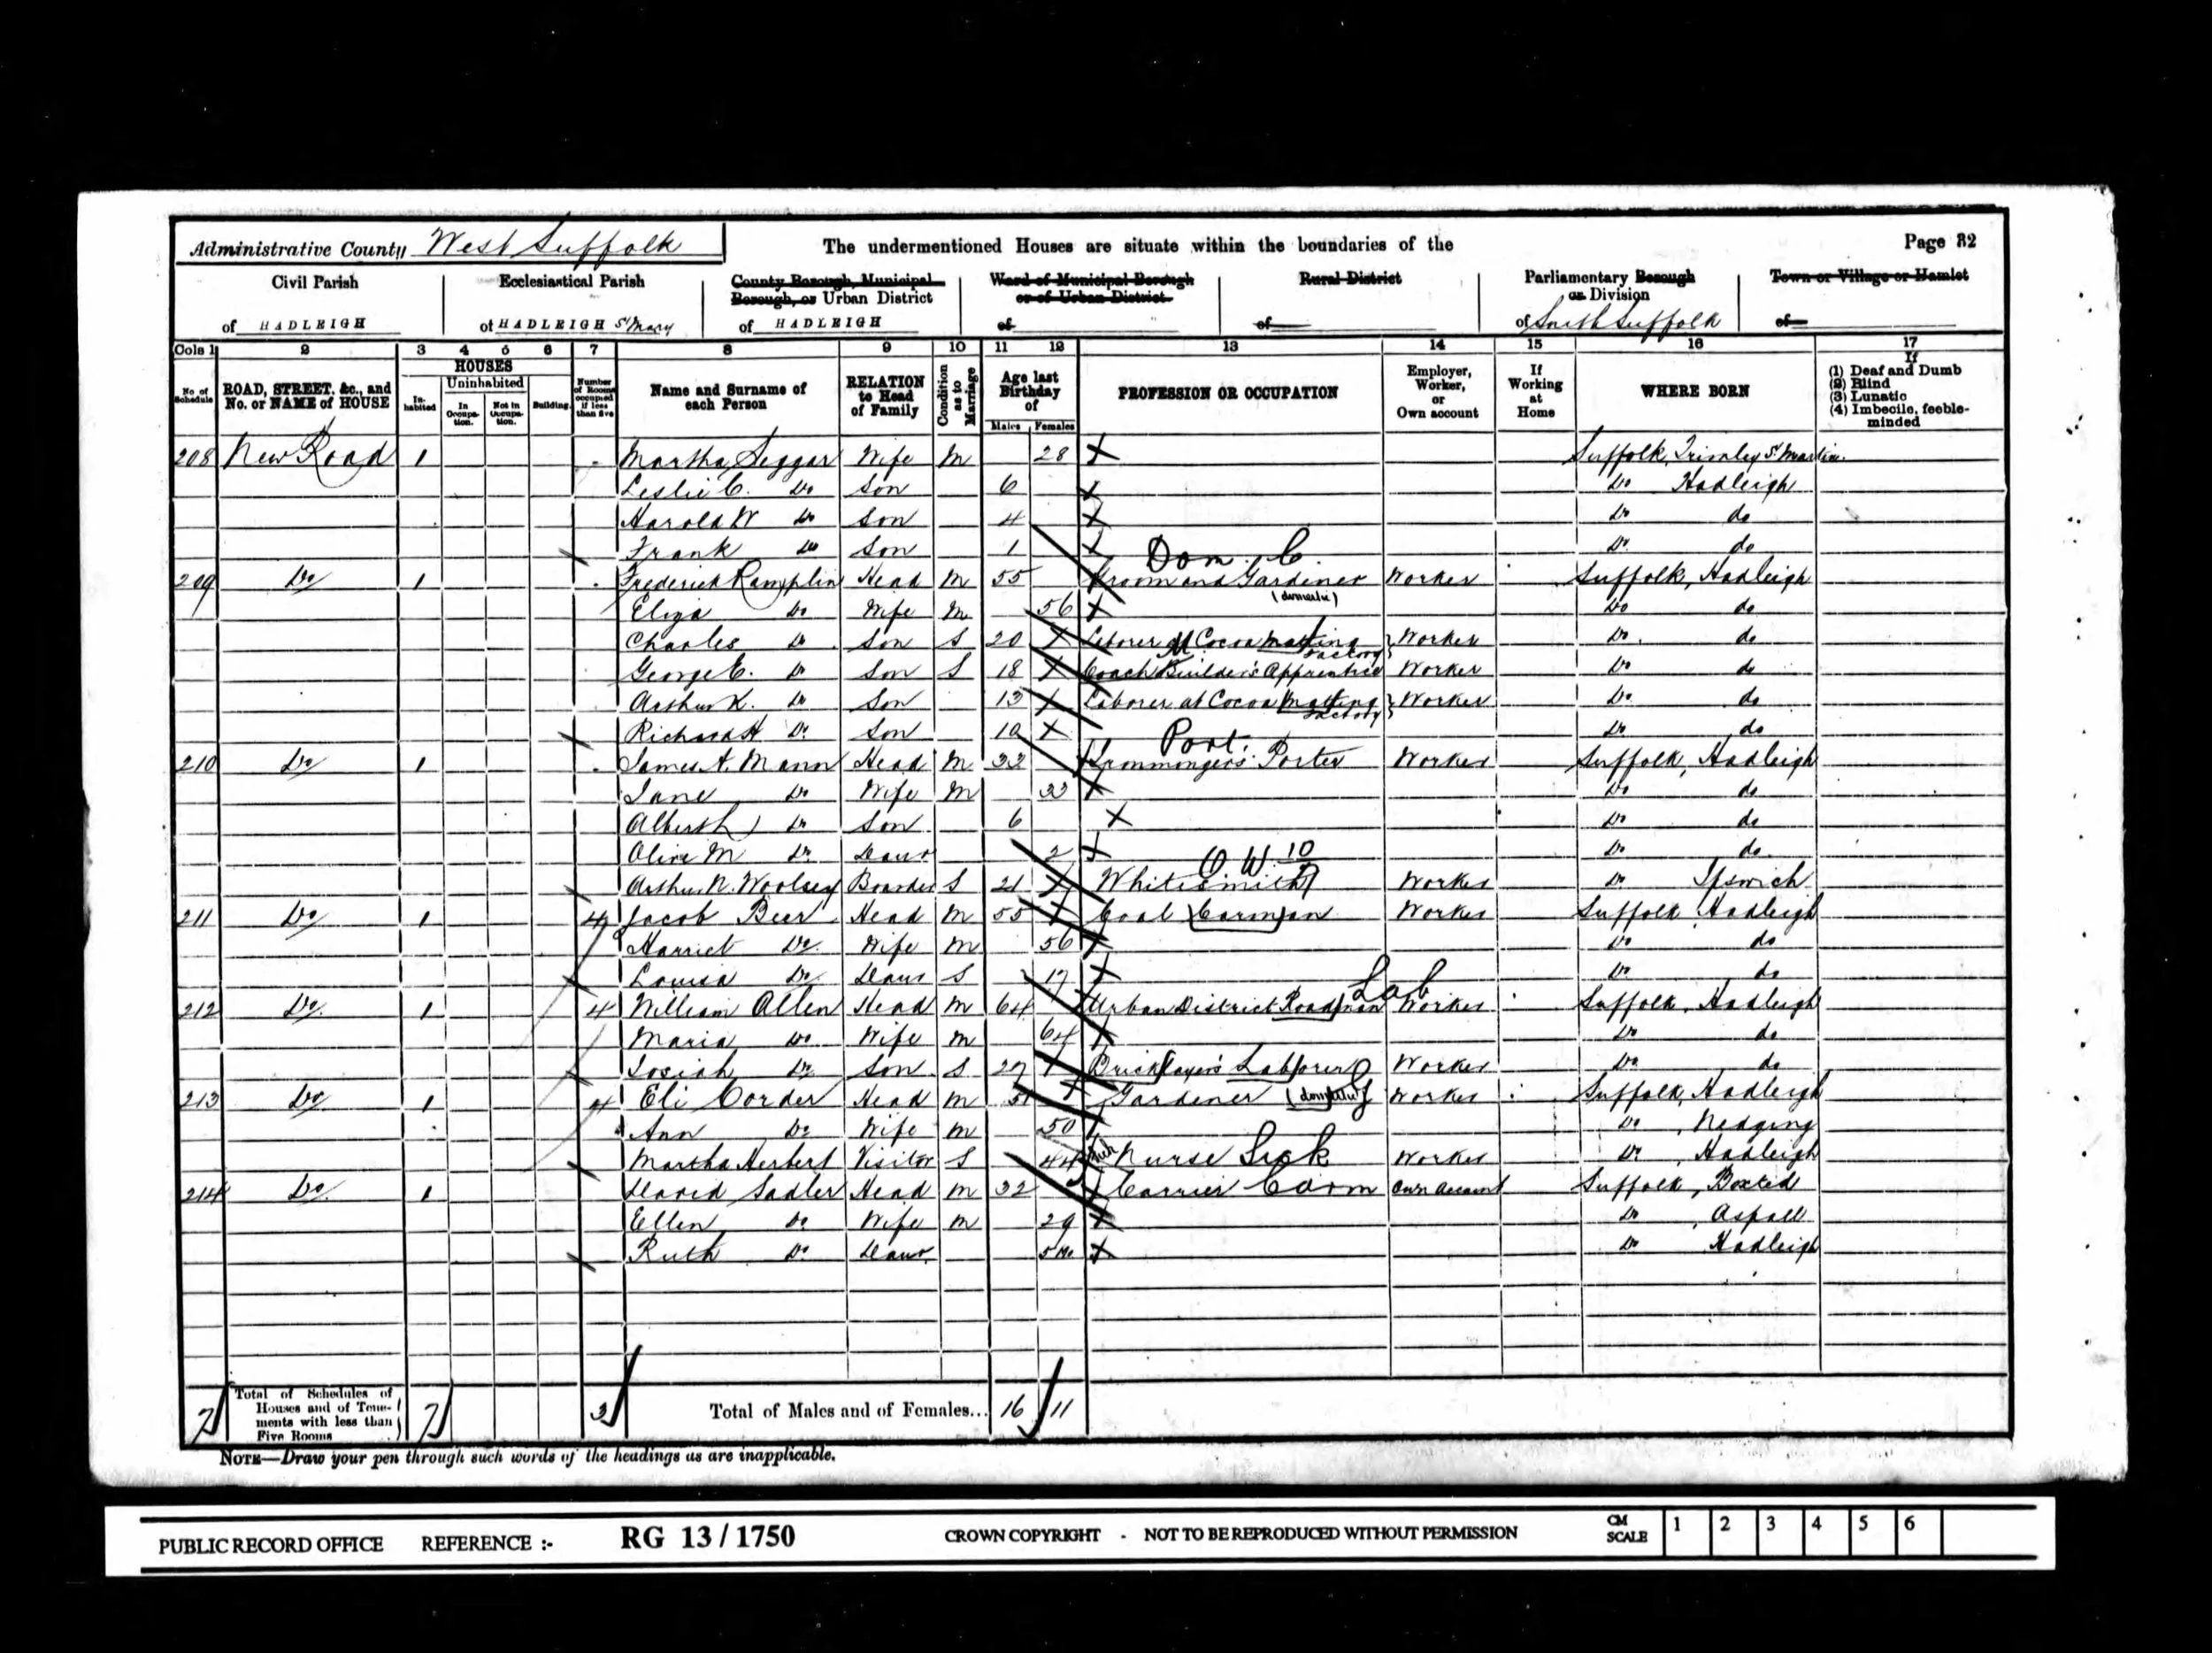 Administrative County West Suffolk The undermentioned Houses are situate within the boundaries of the Page 32
Civil Parish Ecclesiastical Parish County Borough, Municipal Borough, or Urban District Ward of Municipal Borough or of Urban District Rural District Parliamentary Borough or Division Town or Village or Hamlet
of HADLEIGH of HADLEIGH St Mary of HADLEIGH of of of South Suffolk of
Cols 1 2 3 4 5 6 7 8 9 10 11 12 13 14 15 16 17
No of Schedule ROAD, STREET, &c., and No. or NAME of HOUSE HOUSES Inhabited Uninhabited In Occupation. Not in Occupation. Building. Number of Rooms occupied if less than five Name and Surname of each Person RELATION to Head of Family Condition as to Marriage Age last Birthday of Males Females PROFESSION OR OCCUPATION Employer, Worker, or Own account If Working at Home WHERE BORN If (1) Deaf and Dumb (2) Blind (3) Lunatic (4) Imbecile, feeble-minded
208 New Road 1 Martha Seggar Wife M 28 Suffolk, Trimley St Martin
Leslie C. Do Son 6 Do Hadleigh
Harold W Do Son 4 Do do
Frank Do Son 1 Do do
Dom. C
209 Do 1 Frederick Ramplin Head M 55 Groom and Gardener (domestic) Worker Suffolk, Hadleigh
Eliza Do Wife M 56 Do do
Charles Do Son S 20 Laborer at Cocoa Matting Factory Worker Do do
George C. Do Son S 18 Coach Builder's Apprentice Worker Do do
Arthur K. Do Son 13 Laborer at Cocoa Matting Factory Worker Do do
Richard H Do Son 10 Do do
Port.
210 Do 1 James A. Mann Head M 33 Ironmongers Porter Worker Suffolk, Hadleigh
Jane Do Wife M 33 Do do
Albert Do Son 6 Do do
Olive M Do Daur 2 Do do
O W 10
Arthur N. Woolsey Boarder S 21 Whitesmith Worker Do Ipswich
211 Do 1 4 Jacob Beer Head M 55 Coal Carman Worker Suffolk Hadleigh
Harriet Do Wife M 56 Do do
Louisa Do Daur S 17 Do do
Lab
212 Do 1 4 William Allen Head M 64 Urban District Roadman Worker Suffolk, Hadleigh
Maria Do Wife M 64 Do do
Josiah Do Son S 27 Bricklayer's Laborer Worker Do do
213 Do 1 4 Eli Corder Head M 51 Gardener (domestic) Worker Suffolk, Hadleigh
Ann Do Wife M 50 Do, Nedging
Martha Herbert Visitor S 44 Sick Nurse Sick Worker Do, Hadleigh
214 Do 1 David Sadler Head M 32 Carrier Carm Own Account Suffolk, Boxted
Ellen Do Wife M 29 Do, Aspall
Ruth Do Daur. 5 Mo Do Hadleigh
7 Total of Schedules of Houses and of Tenements with less than Five Rooms 7 3 Total of Males and of Females... 16 11
NOTE—Draw your pen through such words of the headings as are inapplicable.
PUBLIC RECORD OFFICE REFERENCE :- RG 13 / 1750 CROWN COPYRIGHT - NOT TO BE REPRODUCED WITHOUT PERMISSION CM SCALE 1 2 3 4 5 6